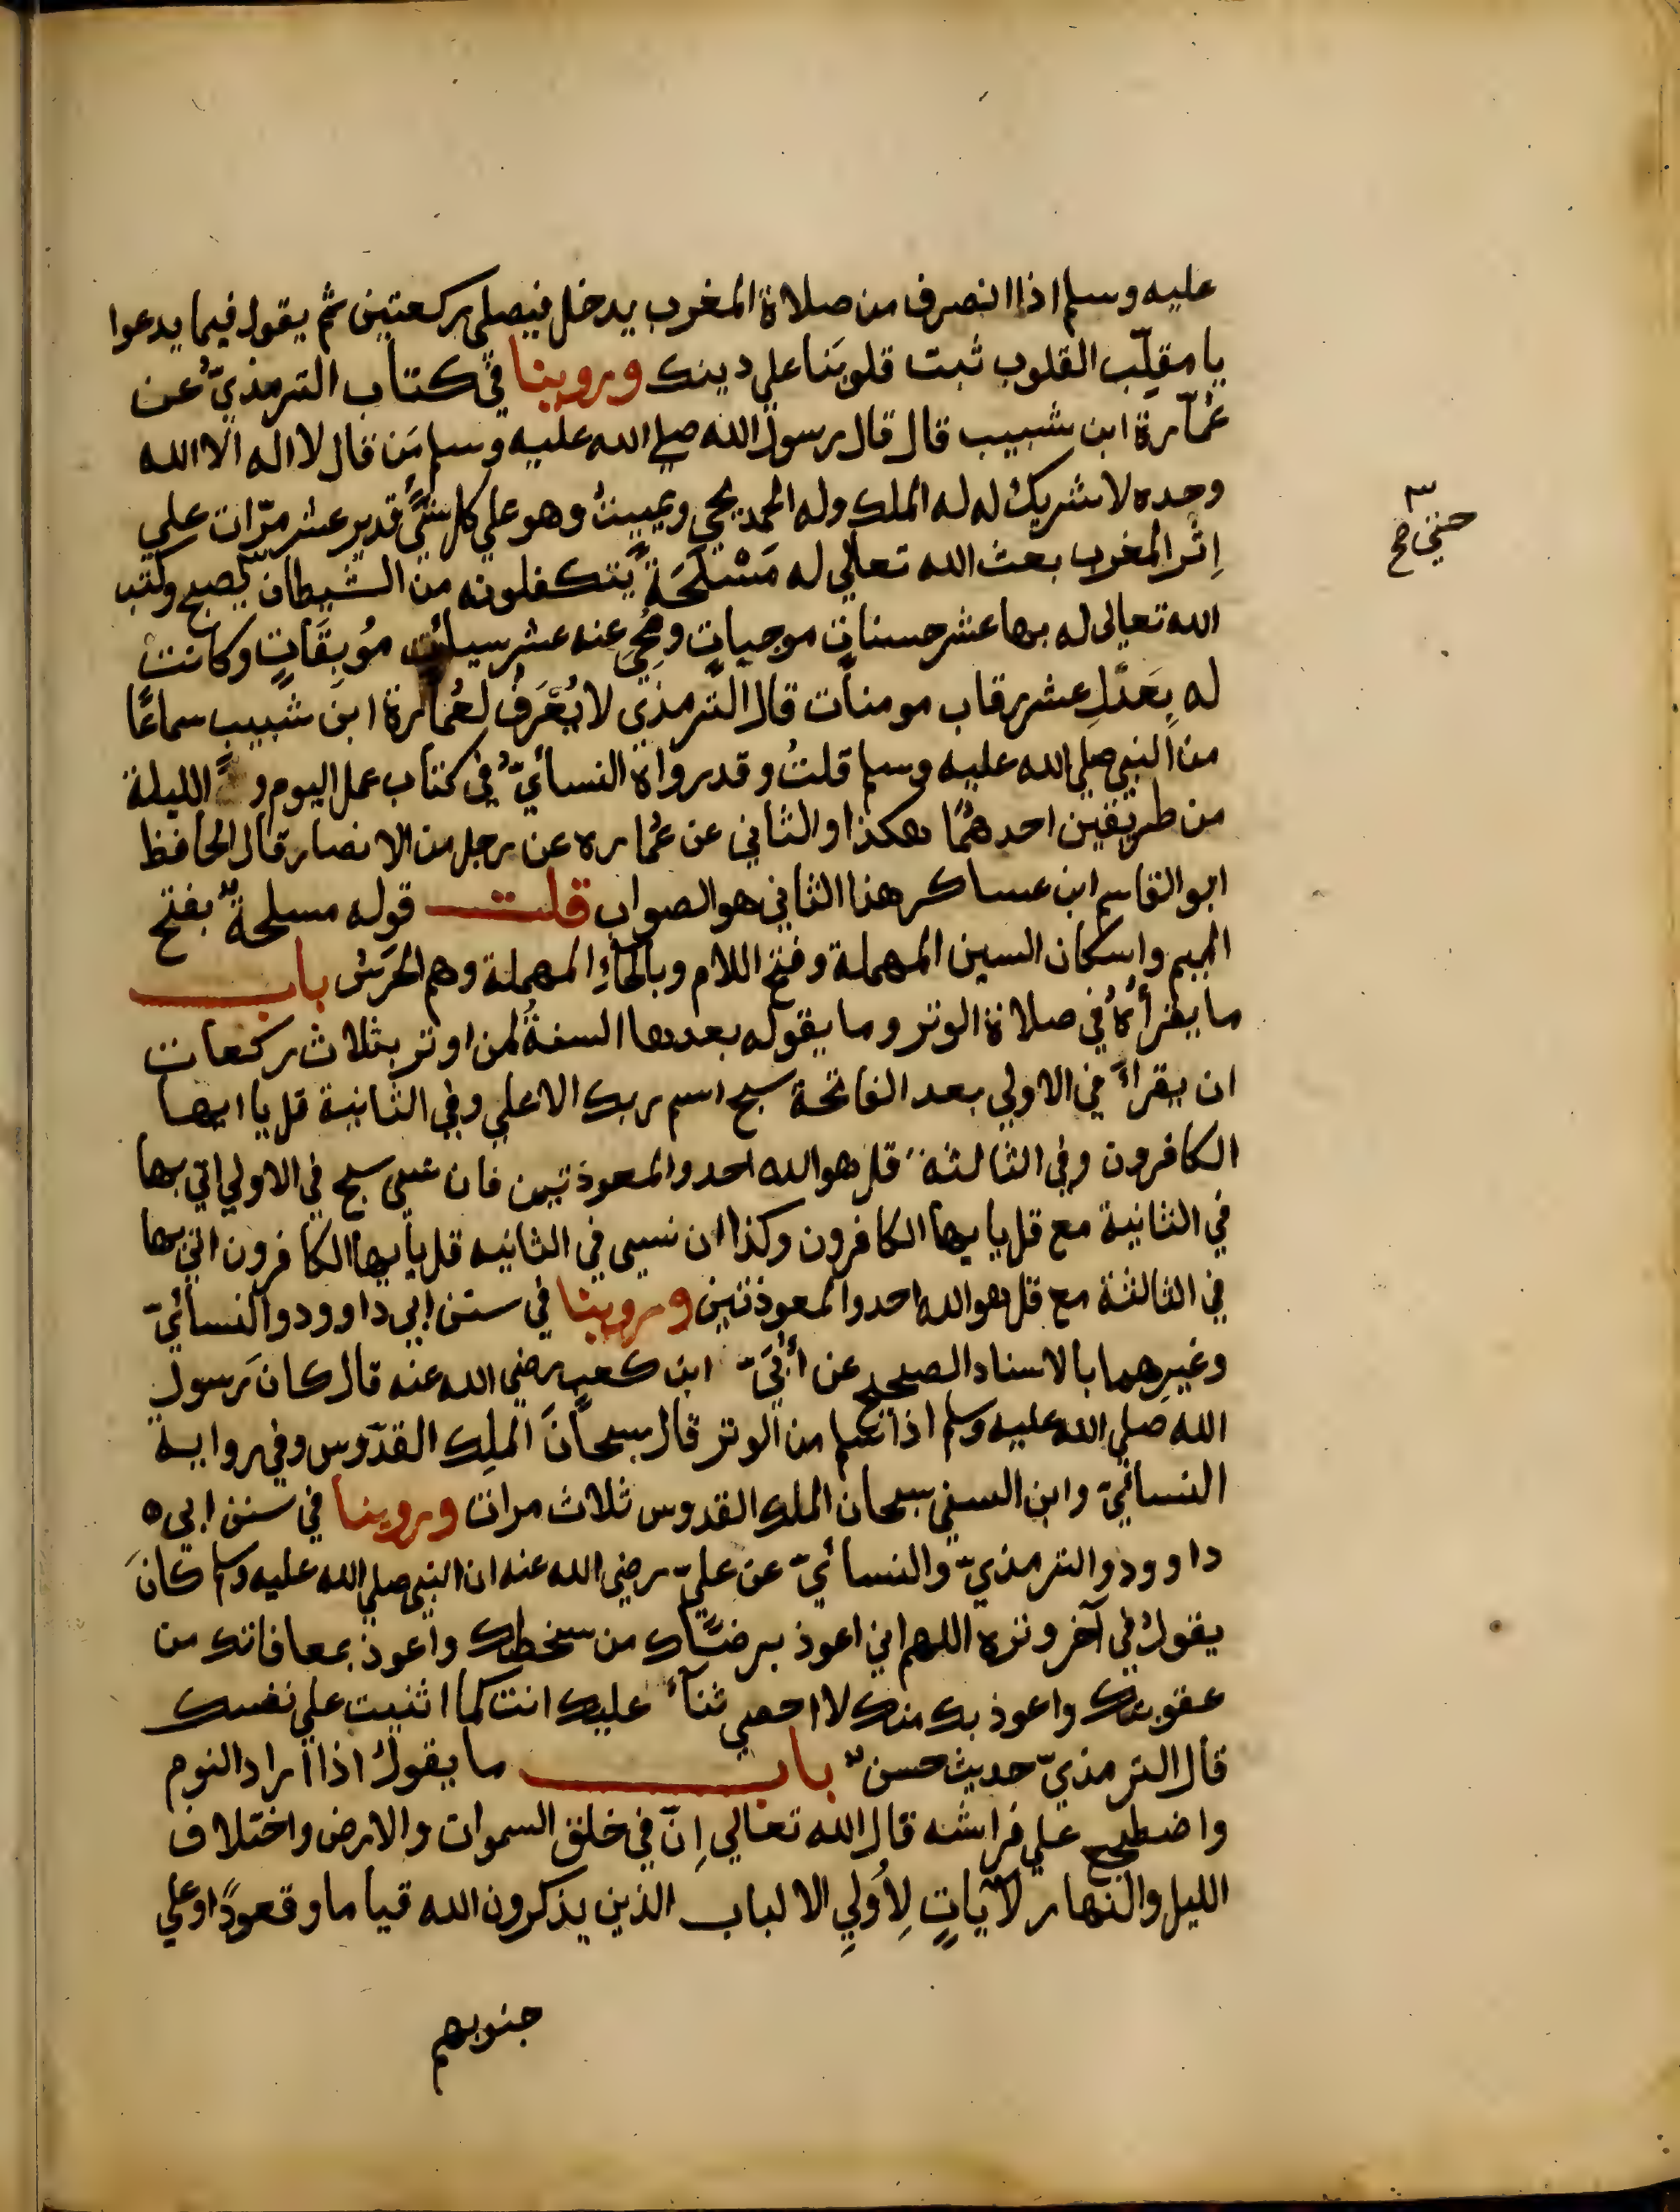 عليه وسلم اذا انصرف من صلاة المغرب يدخل فيصلي ركعتين ثم يقول فيما يدعوا
يا مقلّب القلوب ثبت قلوبَنا علي دينك وروينا في كتاب الترمذيّ عن
عُمارة ابن شبيب قال قال رسول الله صلي الله عليه وسلم مَن قال لا اله الا الله
وحده لا شريك له له الملك وله الحمد يحي ويميتُ وهو علي كل شيٍّ قدير عشر مرّات علي
حتي صح
اِثْر المغرب بعث الله تعالي له مَسْلَحَةً يتكفلونه من الشيطان يصبح وكتب
الله تعالى له بها عشر حسنات موجباتٍ ومُحِيَ عنه عشر سيئات مُوبِقَاتٍ وكانت
له بِعَدْلِ عشر رقاب مومنات قال الترمذي لا يُعْرَفُ لعُمارة ابن شبيبٍ سماعًا
من النبي صلي الله عليه وسلم قلتُ وقد رواه النسائيّ في كتاب عمل اليوم و الليلة
من طريقين احدهُمَا هكذا والثاني عن عُماره عن رجل من الانصار قال الحافظ
ابو القاسم ابن عساكر هذا الثاني هو الصواب قلت قوله مسلحةٌ بفتح
الميم واسكان السين المهملة وفتح اللام وبالحاءِ المهملة وهم الحَرَسُ باب
ما يقرأُهُ في صلاة الوتر وما يقوله بعدها السنةُ لمن اوتر بثلاث ركعات
ان يقراءَ في الاولي بعد الفاتحة سبح اسم ربك الاعلي وفي الثانية قل يا ايها
الكافرون وفي الثالثة قل هو الله احد والمعوذتين فان نسي سبح في الاولي اتي بها
في الثانية مع قل يا يها الكافرون وكذا ان نسي في الثانيه قل يا يها الكافرون اتي بها
في الثالثة مع قل هو الله احد والمعوذتين وروينا في سنن ابي داوود والنسائيّ
وغيرِهما بالاسناد الصحيح عن أُبَيّ ابن كعب رضي الله عنه قال كانَ رسول
الله صلي الله عليه وسلم اذا سلم من الوتر قال سبحانَ الملِك القدّوس وفي رواية
النسائيّ وابن السني سبحان الملك القدوس ثلاث مرات وروينا في سنن ابي ه
داوود والترمذيّ والنسائيّ عن عليّ رضي الله عنه ان النبي صلي الله عليه وسلم كانَ
يقولُ في آخر وتره اللهم اني اعوذ برضاك من سخطك واعوذ بمعافاتك من
عقوبتك واعوذ بك منك لا احصي ثناءً عليك انت كما اثنيت علي نفسك
قال الترمذيّ حديث حسنٌ باب ما يقولُ اذا اراد النوم
واضطجع علي فراشه قال الله تعالي اِنّ في خلق السموات والارض واختلاف
الليل والنهار لآياتٍ لِأُولِي الالباب الذين يذكرون الله قياما وقعودًا وعلي
جنوبهم